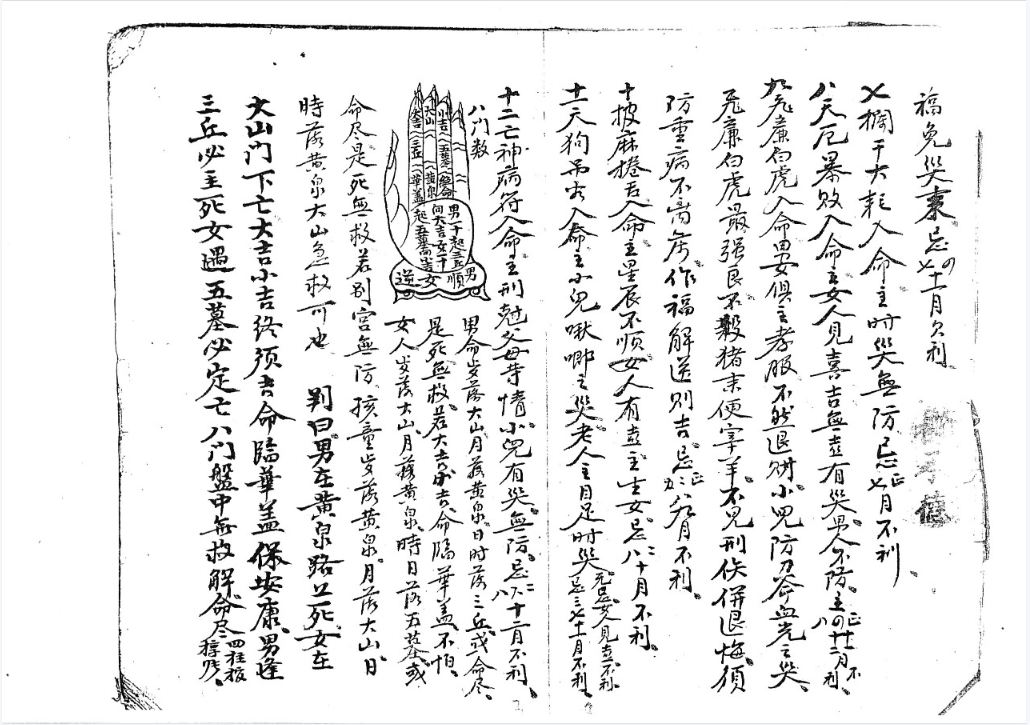 福免災東忌四七十一月欠利
七搁干大耗入命主时災無防忌正七月不利
八天厄暴敗入命主女人見喜吉無喜有災男人不防主正四廿二月不利
九飛廉白虎入命男女俱主孝服不然退財小児防刀斧血光之災
飛廉白虎最强良不殺猪来便宰羊不見刑伕併退悔須
防重病不离床作福解送則吉忌正二八九月不利
十披麻捲舌入命主星辰不順女人有喜主生女忌二八十月不利
十一天狗吊客入命主小児啾唧之災老人主目足时災
十二亡神病符入命主刑尅父母事情小児有災無防忌二六八十二月不利
八门数
大吉
大山
小吉
三丘
五墓
绝命
華蓋
黄泉
男順
女逆
男命岁落大山月落黄泉日时落三丘或命尽
是死無救若大吉小吉命臨華盖不怕
女人岁落大山月落黄泉時日落五墓或
命尽是死無救若别宫無防孩童岁落黄泉月落大山日
時落黄泉大山急救可也
判曰男在黄泉路上死女在
大山门下亡大吉小吉终须吉命臨華盖保安康男逢
三丘必主死女遇五墓必定亡八门盤中無救解命尽